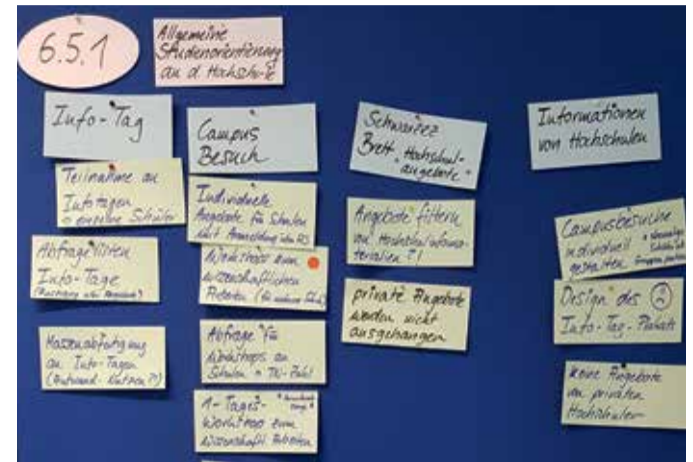 6.5.1
Allgemeine
Studienorientierung
an d. Hochschule
Info-Tag
Teilnahme an
Infotagen
einzelne Schüler
Abfragelisten
Info-Tage
Massenabfertigung
an Info-Tagen
(Aufwand-Nutzen ?!)
Campus
Besuch
Individuelle
Angebote für Schulen
mit Anmeldung
Workshops zum
wissenschaftlichen
Arbeiten
Abfrage für
Workshops an
Schulen TN-Zahl
1-Tages-
Workshop zum
wissenschaftl. Arbeiten
Schwarzes
Brett "Hochschul-
angebote"
Angebote filtern
von Hochschulinforma-
terialien ?!
private Angebote
werden nicht
ausgehangen
Informationen
von Hochschulen
Campusbesuche
individuell
gestalten
Design des ☹
Info-Tag-Plakats
keine Angebote
von privaten
Hochschulen